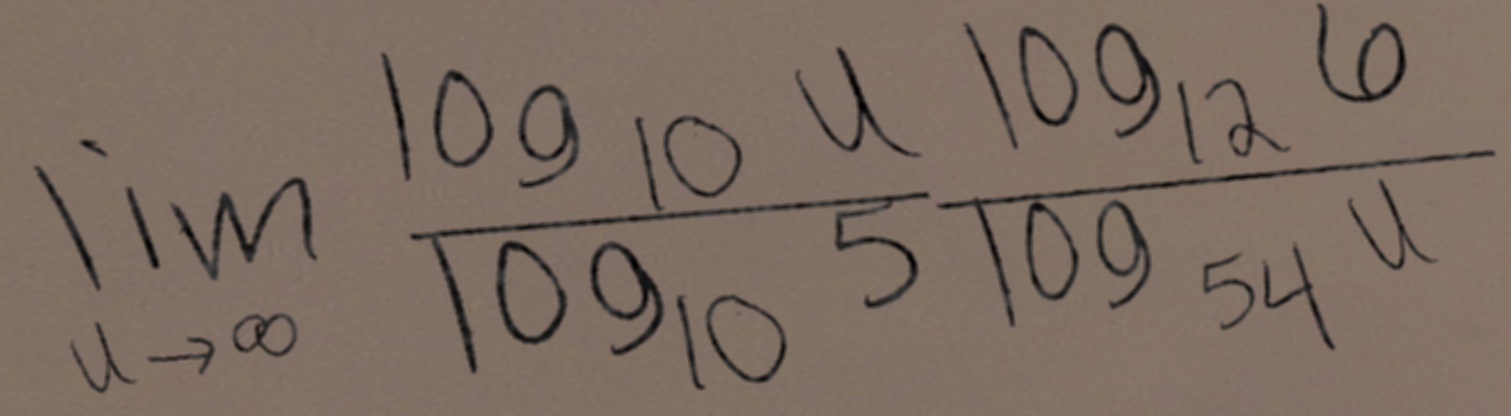 \lim_{u \to \infty} \frac{\log_{10} u}{\log_{10} 5} \frac{\log_{12} 6}{\log_{54} u}